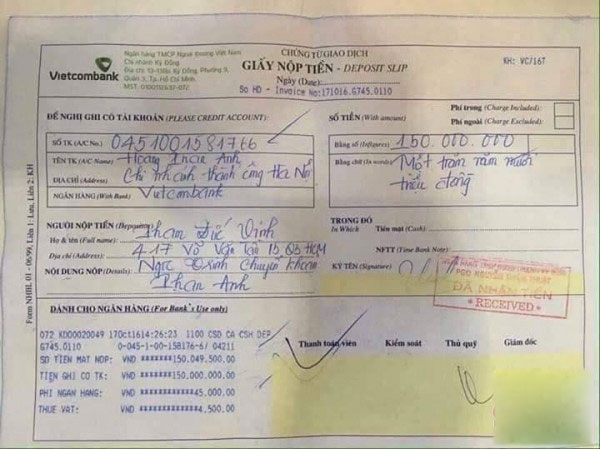 Vietcombank
Ngân hàng TMCP Ngoại thương Việt Nam
Chi nhánh Kỳ Đồng
Địa chỉ: 13-13Bis Kỳ Đồng, Phường 9,
Quận 3, Tp. Hồ Chí Minh
CHỨNG TỪ GIAO DỊCH
GIẤY NỘP TIỀN - DEPOSIT SLIP
Ngày (Date):
KH: VC/16T
So HD - Invoice No:171016.G745.0110
ĐỀ NGHỊ GHI CÓ TÀI KHOẢN (PLEASE CREDIT ACCOUNT):
SỐ TIỀN (With amount)
Phí trong (Charge Included):
Phí ngoài (Charge Excluded):
SỐ TK (A/C No.) 0451001581766
Bằng số (Infigures) 150.000.000
TÊN TK (A/C Name) Hoàng Anh
Bằng chữ (In words) Một trăm năm mươi
ĐỊA CHỈ (Address) Chi nhánh thành công Hà Nội
triệu đồng
NGÂN HÀNG (With Bank) Vietcombank
NGƯỜI NỘP TIỀN (Depositor) Phạm Đức Vinh
TRONG ĐÓ
In Which
Tiền mặt (Cash)
Họ & tên (Full name):
Địa chỉ (Address): 417 Võ Văn Tần P5, Q3 HCM
NFTT (Time Bank Note)
NỘI DUNG NỘP (Details): Ngọc Trinh chuyển khoản
Phan Anh
KÝ TÊN (Signature)
PGD NGUYỄN
ĐÃ NHẬN TIỀN
RECEIVED
Form NHBL 01 - 06/99, Liên 1: Lưu, Liên 2: KH
DÀNH CHO NGÂN HÀNG (For Bank's Use only)
Thanh toán viên Kiểm soát Thủ quỹ Giám đốc
072 KDO0020049 17Oct1614:26:23 1100 CSD CA CSH DEP
G745.0110 0-045-1-00-158176-6/ 04211
SO TIEN MAT NOP: VND *******150,049,500.00
TIEN GHI CO TK: VND *******150,000,000.00
PHI NGAN HANG: VND ********45,000.00
THUE VAT: VND *********4,500.00